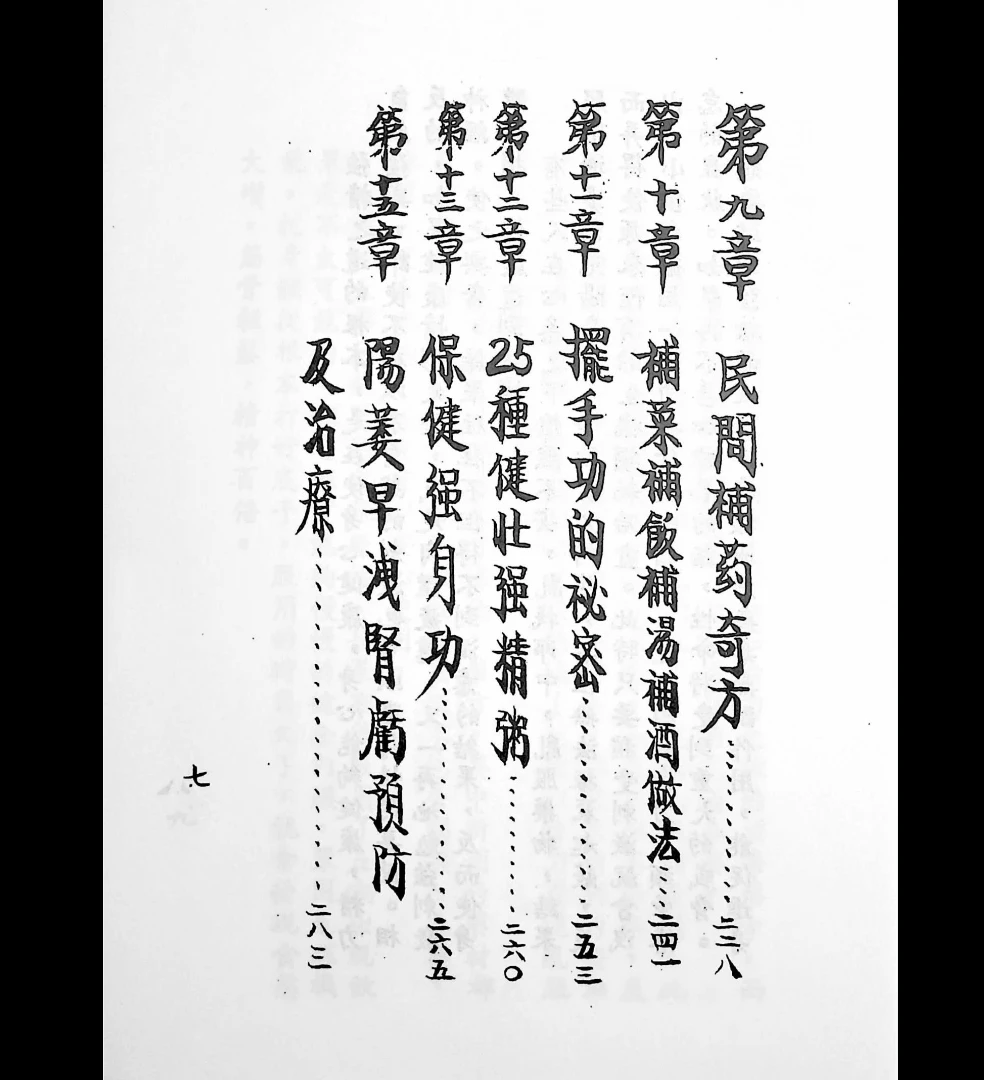 第九章 民間補药奇方…………二三八
第十章 補菜補飯補湯補酒做法……二四一
第十一章 擺手功的祕密…………二五三
第十二章 25種健壯强精粥…………二六〇
第十三章 保健强身功…………二六五
第十五章 陽萎早洩腎虧預防
及治療…………二八三
七